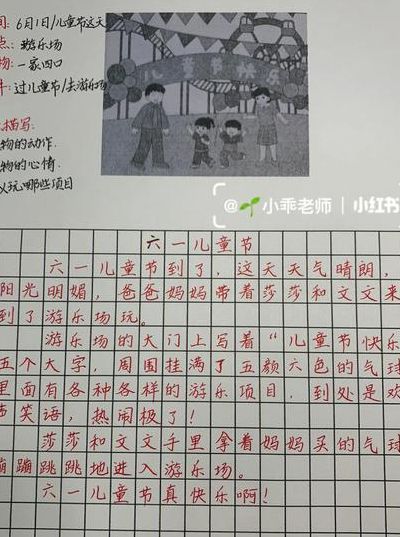 间: 6月1日/儿童节这天
点: 游乐场
物: 一家四口
件: 过儿童节/去游乐场
描写:
物的动作.
物的心情.
以玩哪些项目
儿童节快乐
@小乖老师 | 小红书
六一儿童节
六一儿童节到了,这天天气晴朗,
阳光明媚,爸爸妈妈带着莎莎和文文来
到了游乐场玩。
游乐场的大门上写着“儿童节快乐
五个大字,周围挂满了五颜六色的气球
里面有各种各样的游乐项目,到处是欢
声笑语,热闹极了!
莎莎和文文手里拿着妈妈买的气球
蹦蹦跳跳地进入游乐场。
六一儿童节真快乐啊!